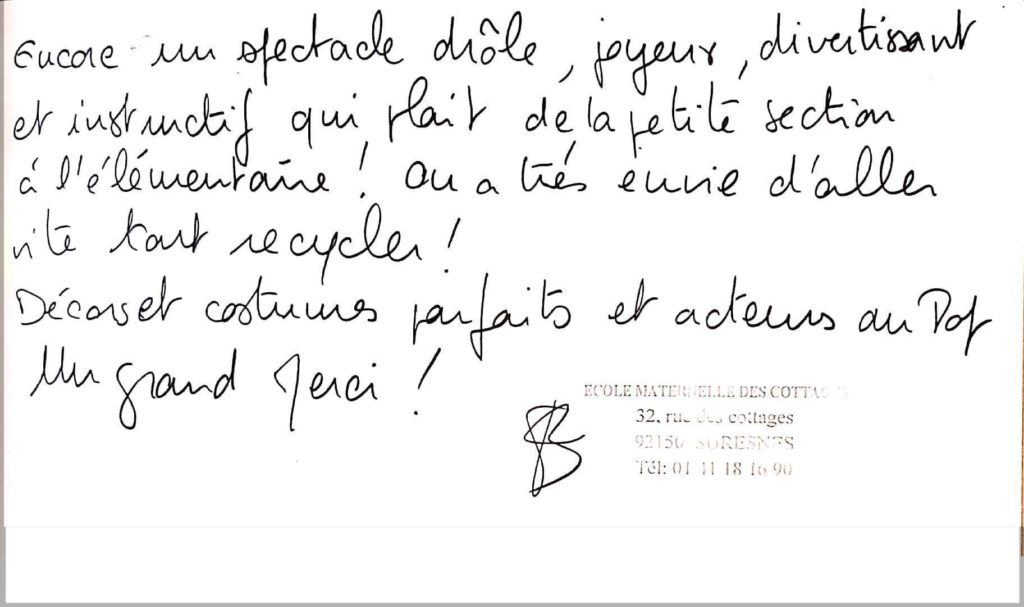 Encore un spectacle drôle, joyeux, divertissant
et instructif qui plait de la petite section
à l'élémentaire ! On a très envie d'aller
vite tout recycler !
Décors et costumes parfaits et acteurs au Top
Un grand Merci !
ECOLE MATERNELLE DES COTTAGES
32, rue des cottages
92150 SURESNES
Tél: 01 41 18 16 90